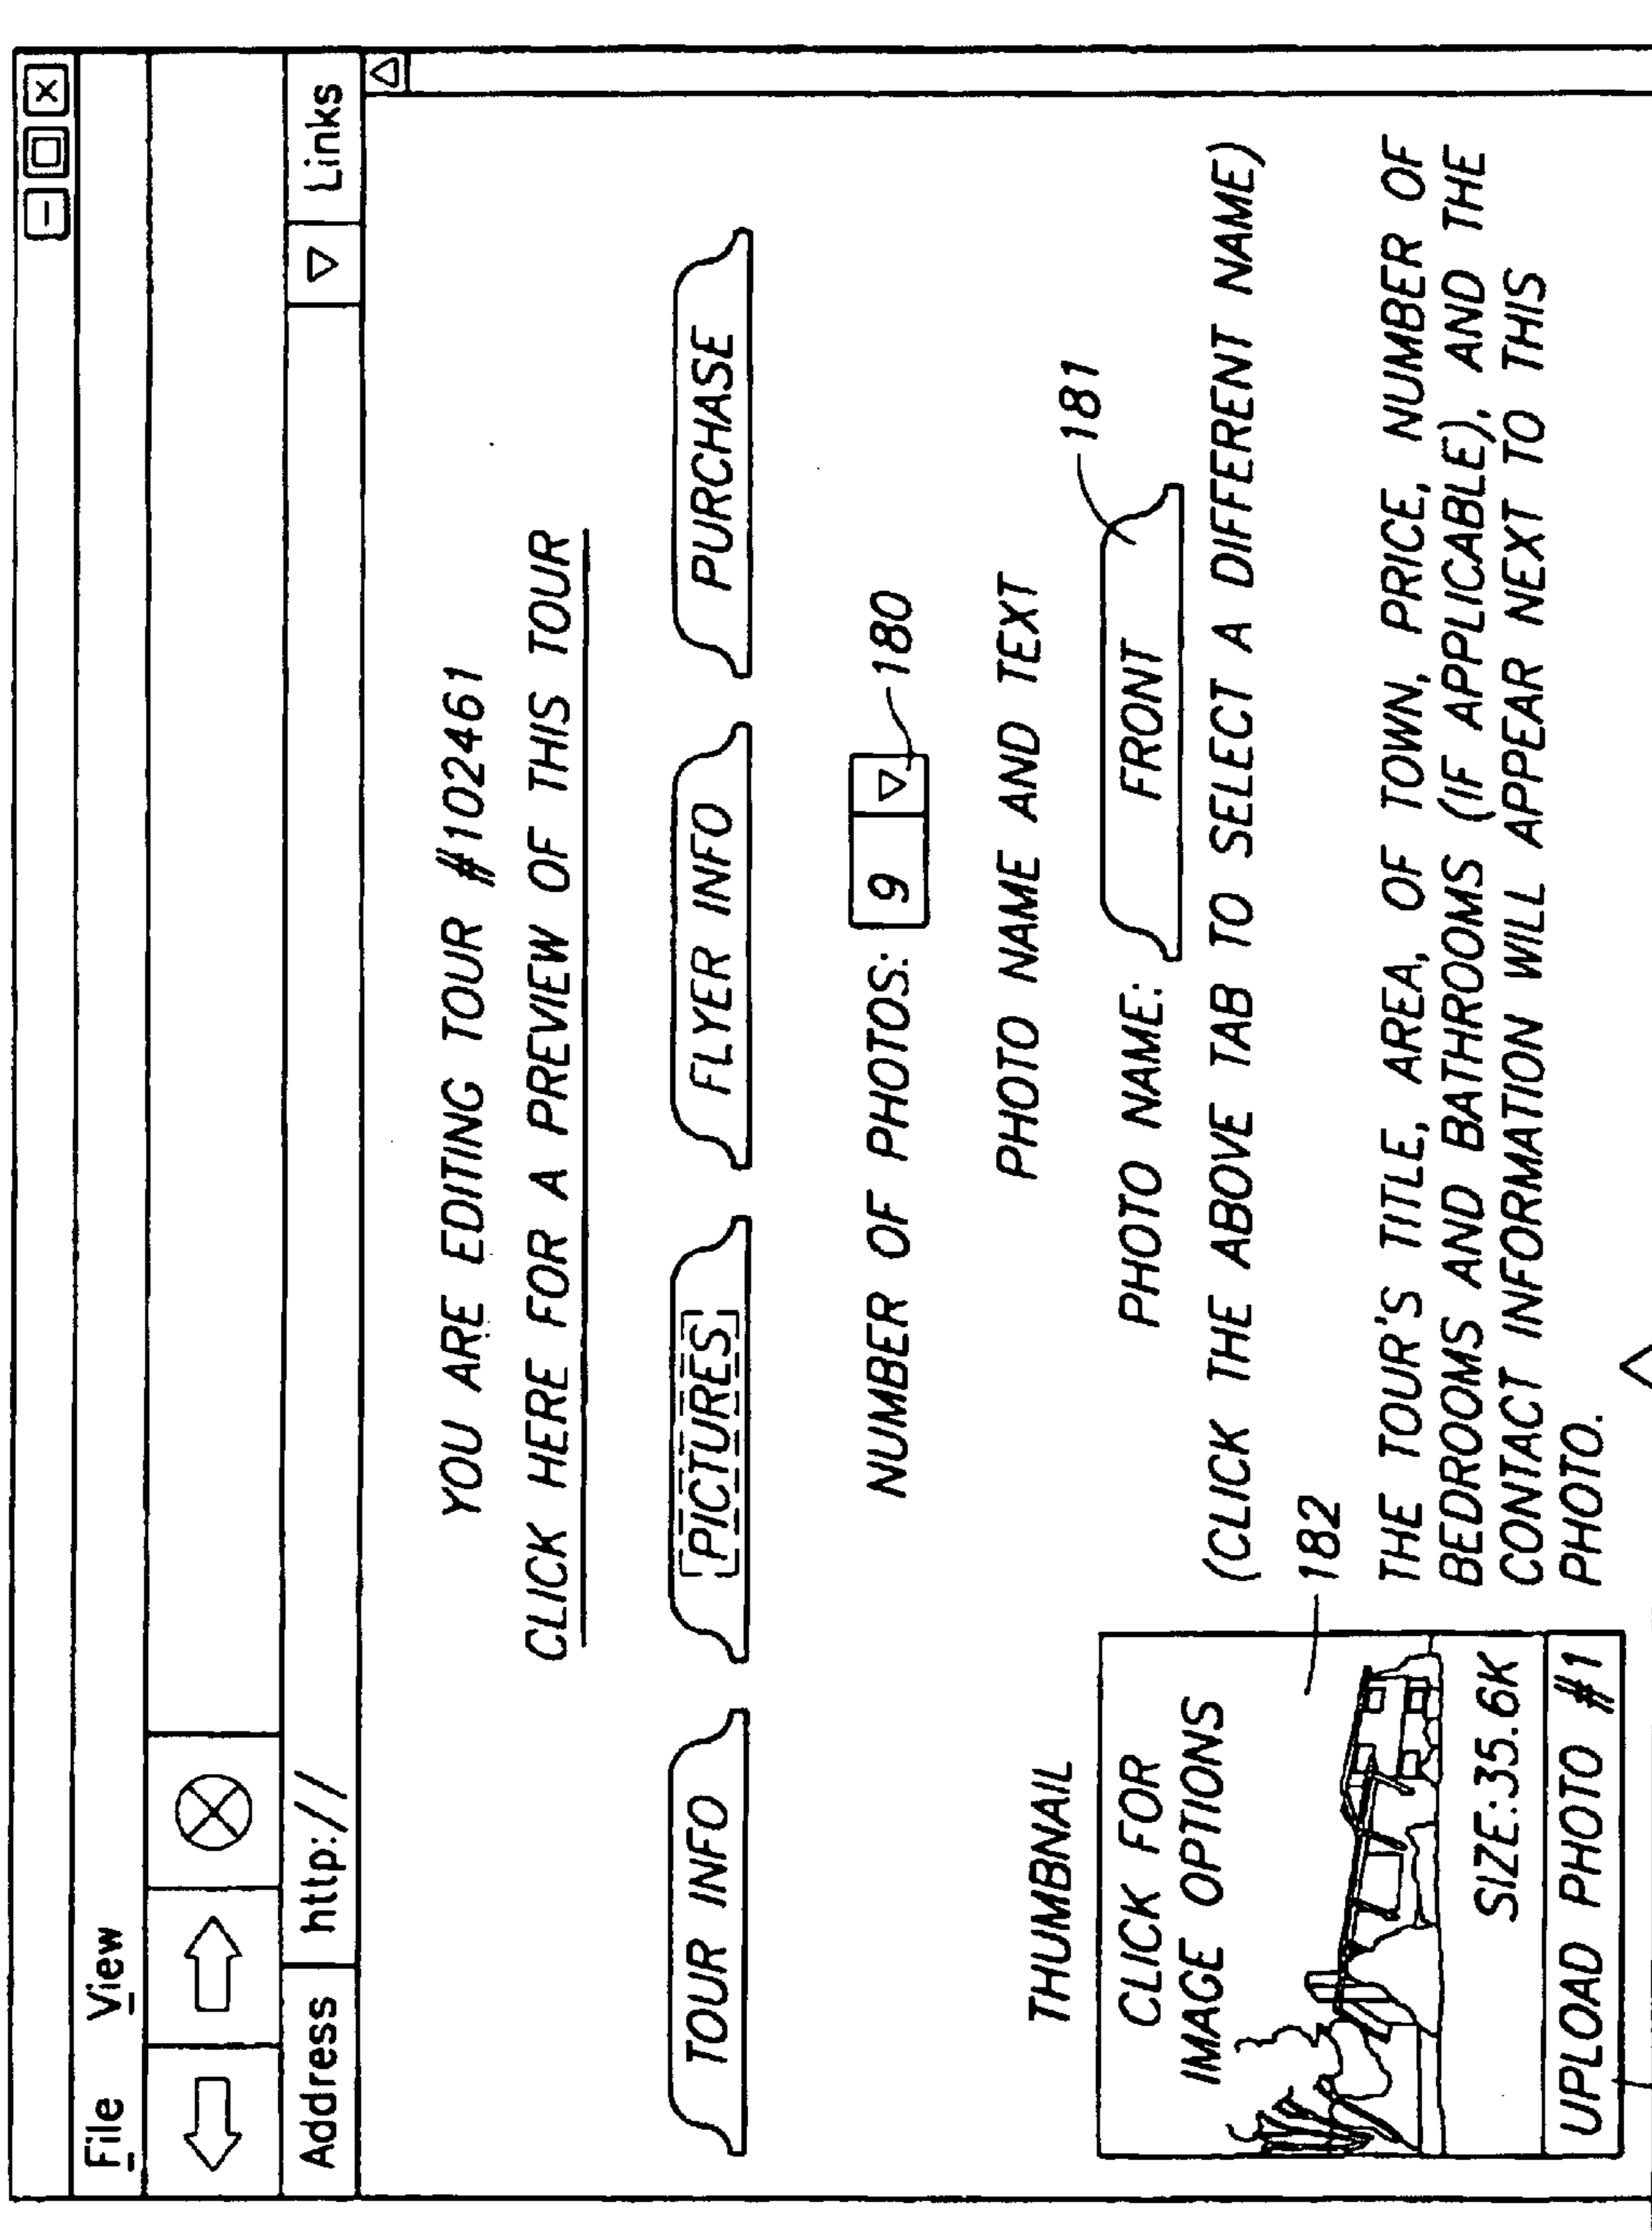 File View
Address http:// Links
YOU ARE EDITING TOUR #102461
CLICK HERE FOR A PREVIEW OF THIS TOUR
TOUR INFO PICTURES FLYER INFO PURCHASE
NUMBER OF PHOTOS: 9 180
PHOTO NAME AND TEXT
THUMBNAIL
181
PHOTO NAME: FRONT
(CLICK THE ABOVE TAB TO SELECT A DIFFERENT NAME)
CLICK FOR
IMAGE OPTIONS
182
THE TOUR'S TITLE, AREA, OF TOWN, PRICE, NUMBER OF
BEDROOMS AND BATHROOMS (IF APPLICABLE), AND THE
CONTACT INFORMATION WILL APPEAR NEXT TO THIS
PHOTO.
SIZE:35.6K
UPLOAD PHOTO #1